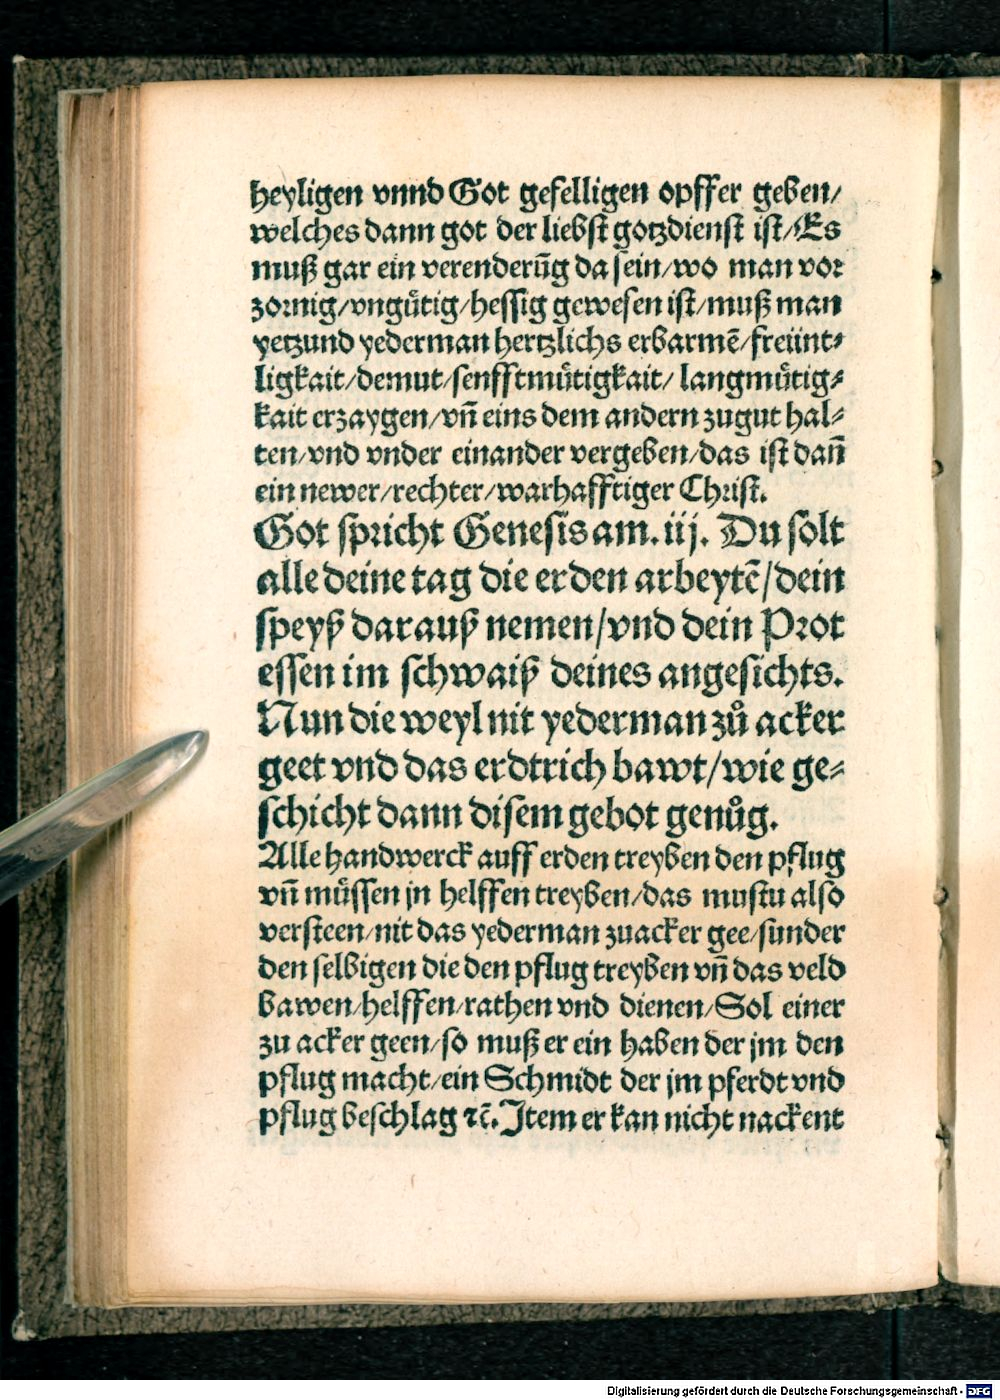 heyligen vnnd Got gefelligen opffer geben/
welches dann got der liebst gotzdienst ist/Es
muß gar ein verenderūg da sein/wo man vor
zornig/vngůtig/hessig gewesen ist/muß man
yetzund yederman hertzlichs erbarmē/freünt⸗
ligkait/demut/senfftmůtigkait/ langmůtig⸗
kait erzaygen/vñ eins dem andern zugut hal⸗
ten/vnd vnder einander vergeben/das ist dañ
ein newer/rechter/warhafftiger Christ.
Got spricht Genesis am. iij. Du solt
alle deine tag die erden arbeytē/dein
speyß darauß nemen/vnd dein Prot
essen im schwaiß deines angesichts.
Nun die weyl nit yederman zů acker
geet vnd das erdtrich bawt/wie ge⸗
schicht dann disem gebot genůg.
Alle handwerck auff erden treyben den pflug
vñ müssen jn helffen treyben/das mustu also
versteen/nit das yederman zuacker gee/sunder
den selbigen die den pflug treyben vñ das veld
bawen/helffen/rathen vnd dienen/Sol einer
zu acker geen/so muß er ein haben der jm den
pflug macht/ein Schmidt der jm pferdt vnd
pflug beschlag ⁊c̄. Item er kan nicht nackent
Digitalisierung gefördert durch die Deutsche Forschungsgemeinschaft - DFG